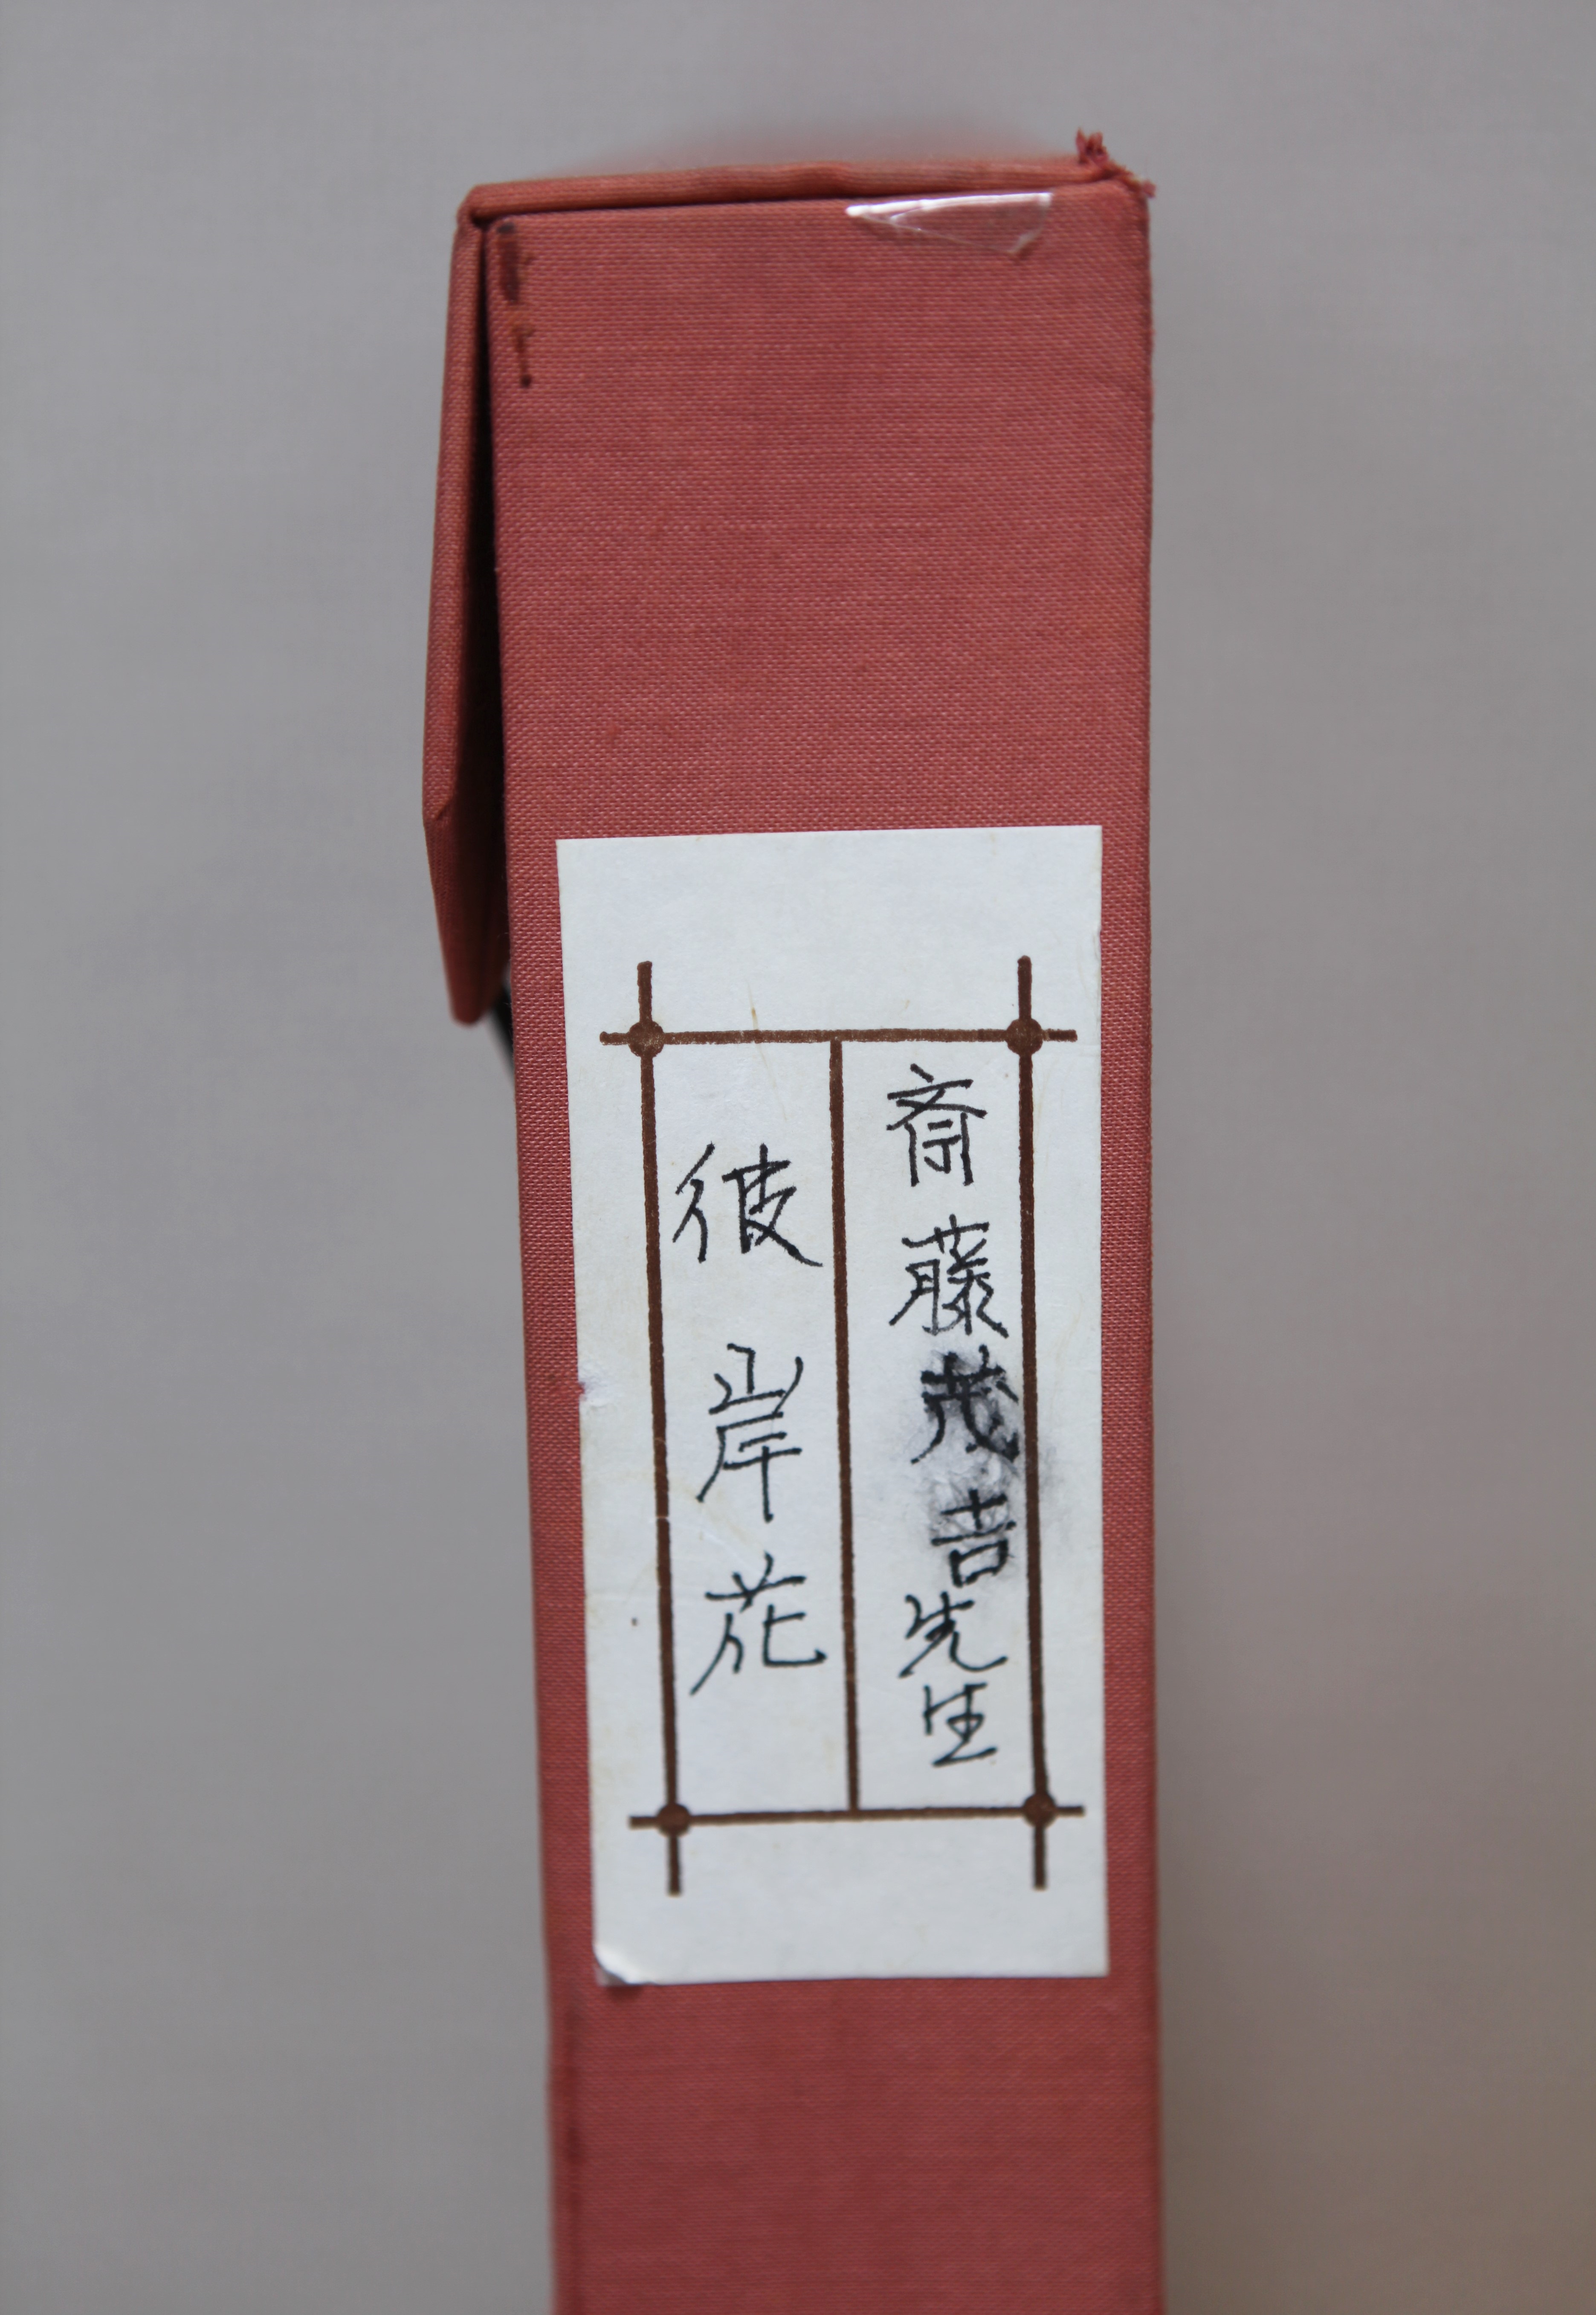 斎藤茂吉先生
彼岸花